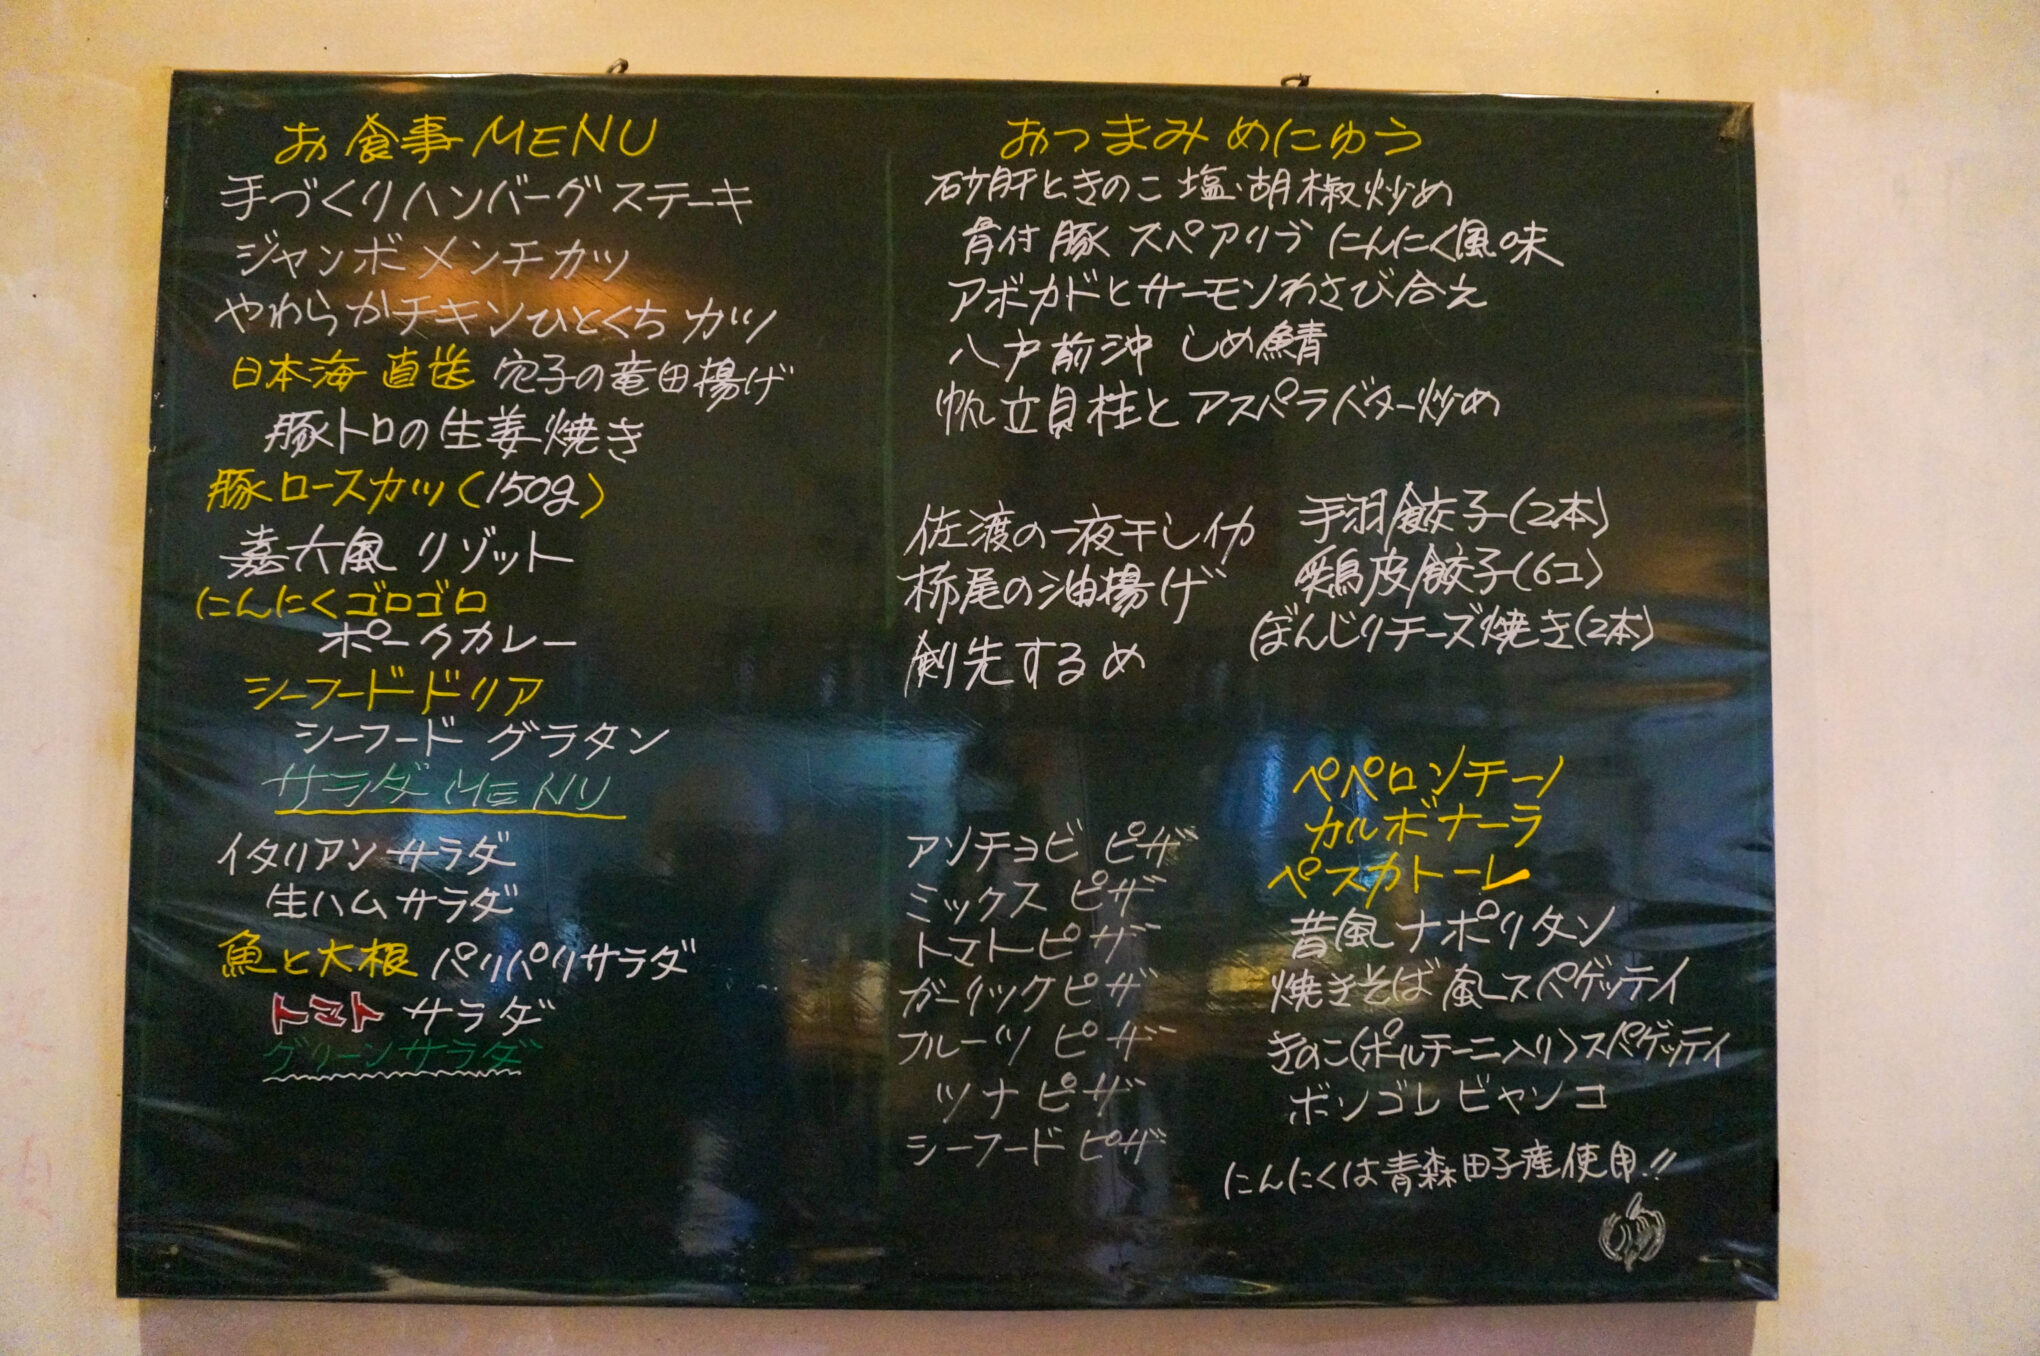 お食事MENU
手づくりハンバーグステーキ
ジャンボメンチカツ
やわらかチキンひとくちカツ
日本海直送 穴子の竜田揚げ
豚トロの生姜焼き
豚ロースカツ(150g)
嘉大風リゾット
にんにくゴロゴロ
ポークカレー
シーフードドリア
シーフード グラタン
サラダMENU
イタリアンサラダ
生ハムサラダ
魚と大根 パリパリサラダ
トマト サラダ
グリーンサラダ
おつまみめにゅう
砂肝ときのこ塩・胡椒炒め
骨付豚 スペアリブ にんにく風味
アボカドとサーモンわさび合え
八戸前沖 しめ鯖
帆立貝柱とアスパラバター炒め
佐渡の一夜干しイカ
栃尾の油揚げ
剣先するめ
手羽餃子(2本)
鶏皮餃子(6コ)
ぼんじりチーズ焼き(2本)
アンチョビ ピザ
ミックス ピザ
トマトピザ
ガーリックピザ
フルーツ ピザ
ツナ ピザ
シーフード ピザ
ペペロンチーノ
カルボナーラ
ペスカトーレ
昔風ナポリタン
焼きそば風スパゲッティ
きのこ(ポルチーニ入り)スパゲッティ
ボンゴレビヤンコ
にんにくは青森田子産使用!!